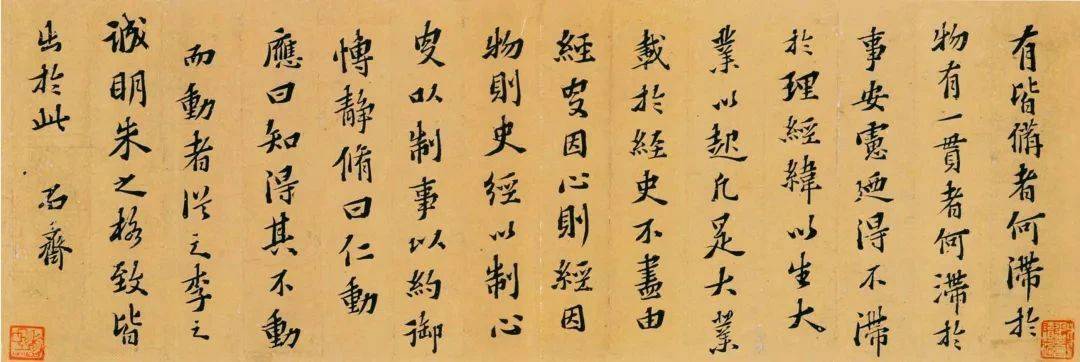 有皆備者何滯於
物有一貫者何滯於
事安慮迺得不滯
於理經緯以生大
業以起凡是大業
載於經史不盡由
經史因心則經因
物則史經以制心
史以制事以約御
博靜脩曰仁動
應曰知得其不動
而動者從之李之
誠明朱之格致皆
出於此 石齋